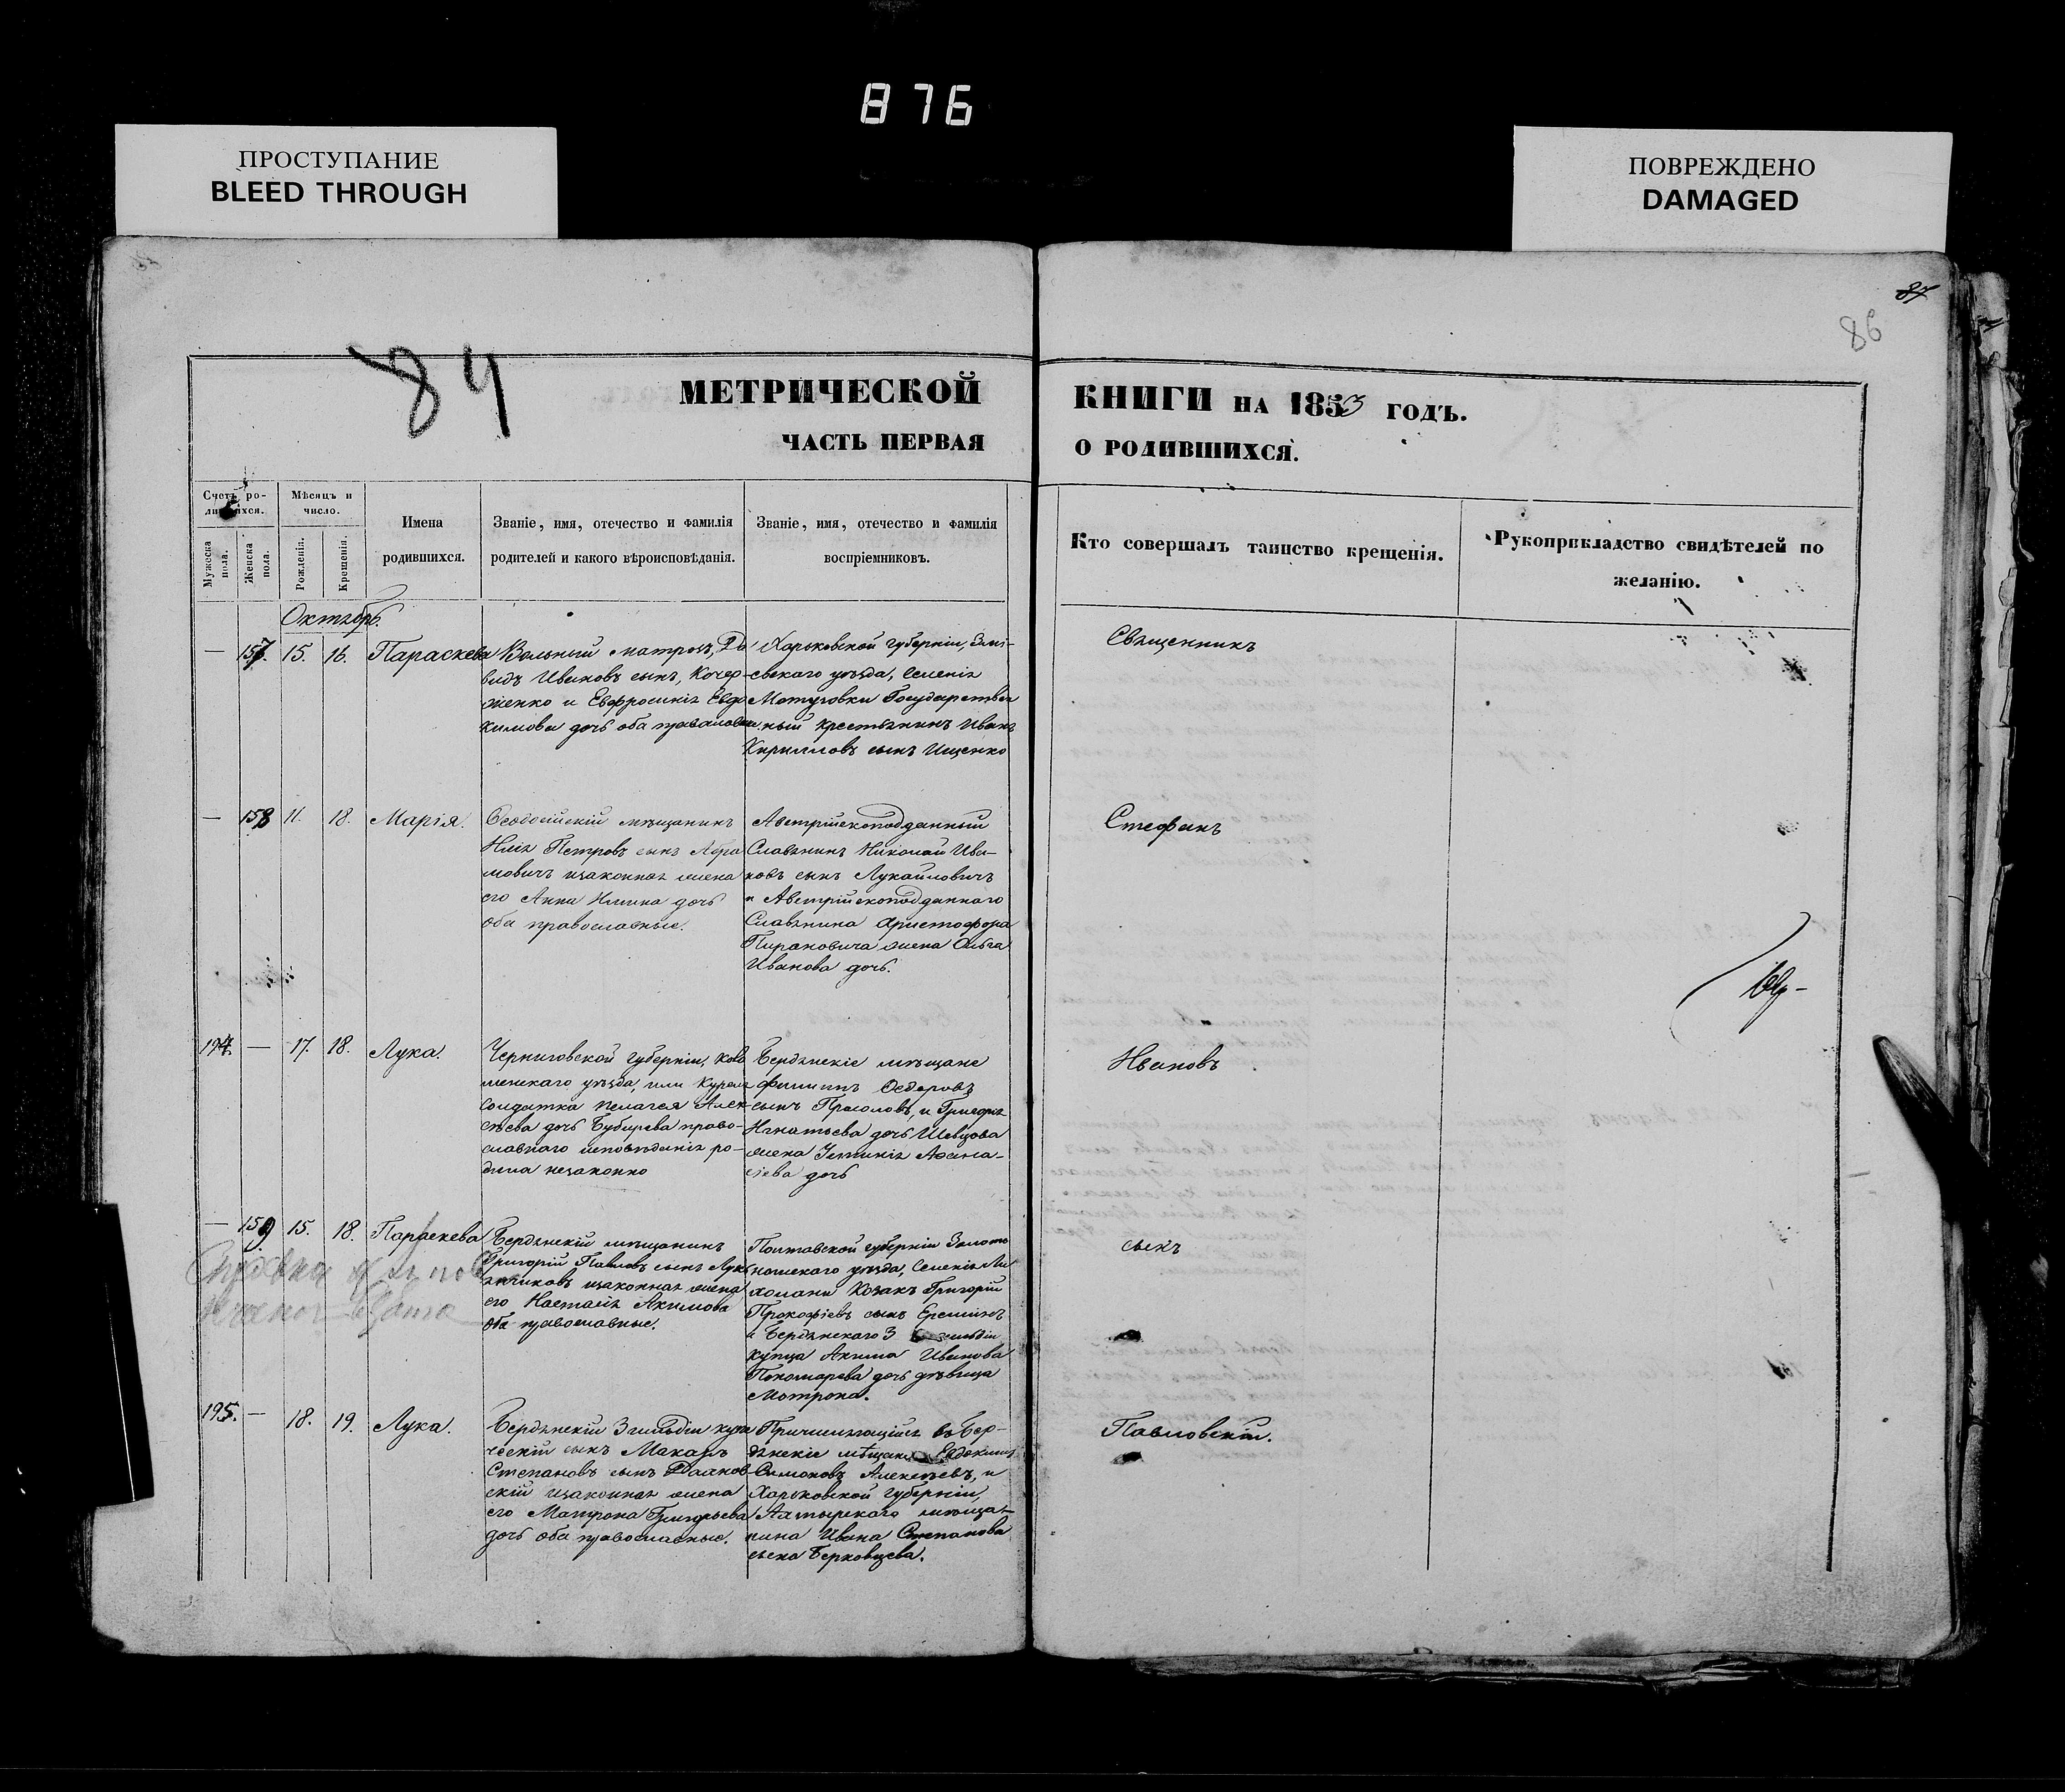 876
ПРОСТУПАНИЕ
BLEED THROUGH
ПОВРЕЖДЕНО
DAMAGED
87
86
84
МЕТРИЧЕСКОЙ
ЧАСТЬ ПЕРВАЯ
КНИГИ НА 1853 ГОДЪ.
О РОДИВШИХСЯ.
Счетъ ро-
дившихся.
Мужеска пола.
Женска пола.
Мѣсяцъ и
число.
Рожденія.
Крещенія.
Имена
родившихся.
Званіе, имя, отечество и фамилія
родителей и какого вѣроисповѣданія.
Званіе, имя, отечество и фамилія
воспріемниковъ.
Кто совершалъ таинство крещенія.
Рукоприкладство свидѣтелей по
желанію.
Октябрь.
— 157. 15. 16. Параскева
Вольный матросъ, Да
видъ Ивановъ сынъ, Кочер-
женко и Евфросинія Евдо
кимова дочь оба православные
Харьковской губерніи, Змі-
евскаго уѣзда, селенія
Государствен
ный крестьянинъ Иванъ
Кирилловъ сынъ Ищенко
Священникъ
— 158 11. 18. Марія.
Ѳеодосійскій мѣщанинъ
Илія Петровъ сынъ Абра
мовичъ и законная жена
его Анна Ильина дочь
оба православные.
Австрійскоподданный
Славянинъ Николай Ива-
новъ сынъ Лукайловичъ
и Австрійскоподданнаго
Славянина Христофора
Пирановича жена Ольга
Иванова дочь.
Стефанъ
194. — 17. 18. Лука.
Черниговской губерніи,
уѣзда,
солдатка Пелагея Алек-
сѣева дочь Бубырева право-
славнаго исповѣданія ро-
дила незаконно
Бердянскіе мѣщане
Филиппъ Ѳедоровъ
сынъ и Григорія
Игнатьева дочь Шевцова
жена Устинія Аѳана-
сіева дочь
Ивановъ
— 159 15. 18. Параскева
Бердянскій мѣщанинъ
Григорій Павловъ сынъ Лукь
янчиковъ и законная жена
его Настасія Акимова
оба православные.
Полтавской губерніи Золото
ношскаго уѣзда, Селенія Ли
хопани Козакъ Григорій
Прокофіевъ сынъ
и Бердянскаго 3 гильдіи
купца Акима Иванова
Пономарева дочь дѣвица
Мотрона.
сынъ
195. — 18. 19. Лука.
Бердянскій 3 гильдіи купе
ческій сынъ Макаръ
Степановъ сынъ
скій и законная жена
его Матрона Григорьева
дочь оба православные.
Причисляющійся въ Бер-
дянскіе мѣщане Евдокимъ
Симоновъ Алексѣевъ, и
Харьковской губерніи,
Ахтырскаго мѣща-
нина Ивана Степанова
сына Берковцева.
Павловскій.